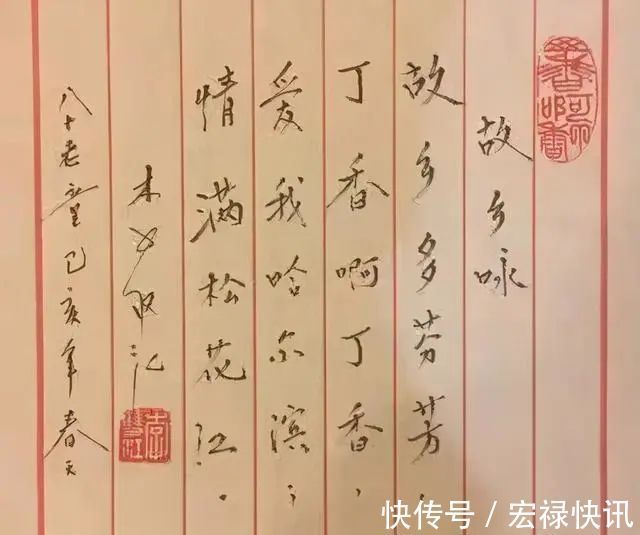 故乡咏
故乡多芬芳，
丁香啊丁香，
爱我哈尔滨；
情满松花江。
李双江
八十老童己亥年春天
李雙江
快传号 / 宏禄快讯